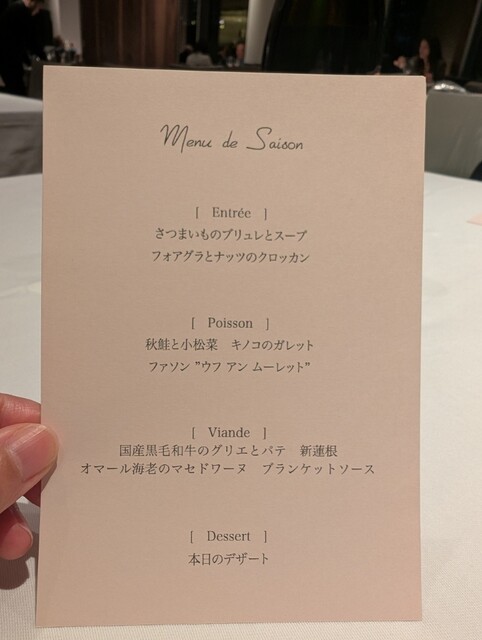 Menu de Saison
[ Entrée ]
さつまいものブリュレとスープ
フォアグラとナッツのクロッカン
[ Poisson ]
秋鮭と小松菜　キノコのガレット
ファソン "ウフ アン ムーレット"
[ Viande ]
国産黒毛和牛のグリエとパテ　新蓮根
オマール海老のマセドワーヌ　ブランケットソース
[ Dessert ]
本日のデザート